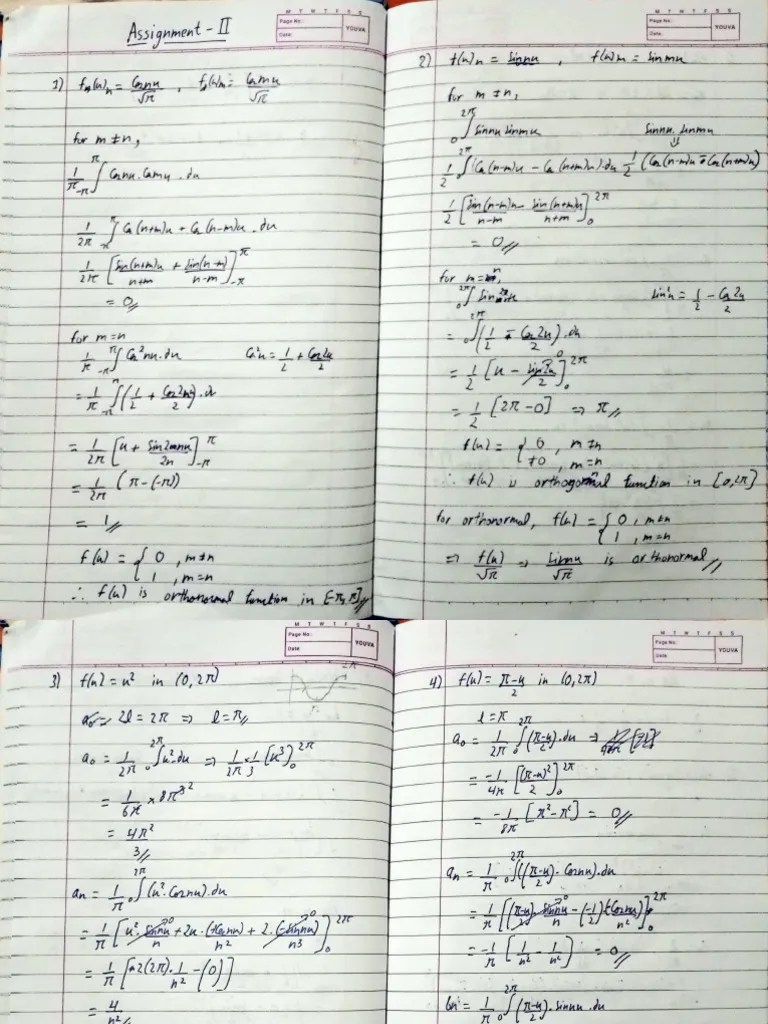 Assignment - II
M T W T F S S
Page No.:
Date:
YOUVA
1) f(x)n = Cosnx/√π , f(x)m = Cosmx/√π
for m ≠ n,
1/π -π∫π Cosnx.Cosmx.dx
1/2π -π∫π Cos(n+m)x + Cos(n-m)x.dx
1/2π [sin(n+m)x/n+m + sin(n-m)/n-m]-ππ
= 0
for m=n
1/π -π∫π Cos²nx.dx Cos²x = 1/2 + Cos2x/2
= 1/π -π∫π (1/2 + Cos2nx/2).dx
= 1/2π [x + sin2nx/2n]-ππ
= 1/2π (π-(-π))
= 1
f(x) = { 0 , m≠n
1 , m=n
∴ f(x) is orthonormal function in [-π, π]
M T W T F S S
Page No.:
Date:
YOUVA
2) f(x)n = sinnx , f(x)m = sinmx
for m ≠ n,
0∫2π sinnx sinmx sinnx.sinmx
1/2 ∫ (Cos(n-m)x - Cos(n+m)x).dx 1/2 (Cos(n-m)x - Cos(n+m)x)
1/2 [sin(n-m)x/n-m - sin(n+m)x/n+m]02π
= 0
for m=n,
0∫2π sin²x sin²x = 1/2 - Cos2x/2
= 0∫2π (1/2 - Cos2x/2).dx
= 1/2 [x - sin2x/2]02π
= 1/2 [2π-0] => π
f(x) = { 0 , m≠n
≠0 , m=n
∴ f(x) is orthogonal function in [0,2π]
for orthonormal, f(x) = { 0 , m≠n
1 , m=n
=> f(x)/√π => sinnx/√π is orthonormal
M T W T F S S
Page No.:
Date:
YOUVA
3) f(x) = x² in (0, 2π)
2l = 2π => l = π
a₀ = 1/2π 0∫2π x².dx => 1/2π × 1/3 [x³]02π
= 1/6π × 8π³
= 4π²/3
an = 1/π 0∫2π (x².Cosnx).dx
= 1/π [x².sinnx/n + 2x.(+Cosnx)/n² + 2.(-sinnx)/n³]02π
= 1/π [+2(2π).1/n² - (0)]
= 4/n²
M T W T F S S
Page No.:
Date:
YOUVA
4) f(x) = π-x/2 in (0,2π)
l = π
a₀ = 1/2π 0∫2π (π-x/2).dx =>
= -1/4π [(π-x)²/2]02π
= -1/8π [π²-π²] = 0
an = 1/π 0∫2π (π-x/2).Cosnx.dx
= 1/π [(π-x/2).sinnx/n - (-1/2)(-Cosnx)/n²]02π
= -1/π [1/n² - 1/n²] = 0
bn = 1/π 0∫2π (π-x/2).sinnx.dx